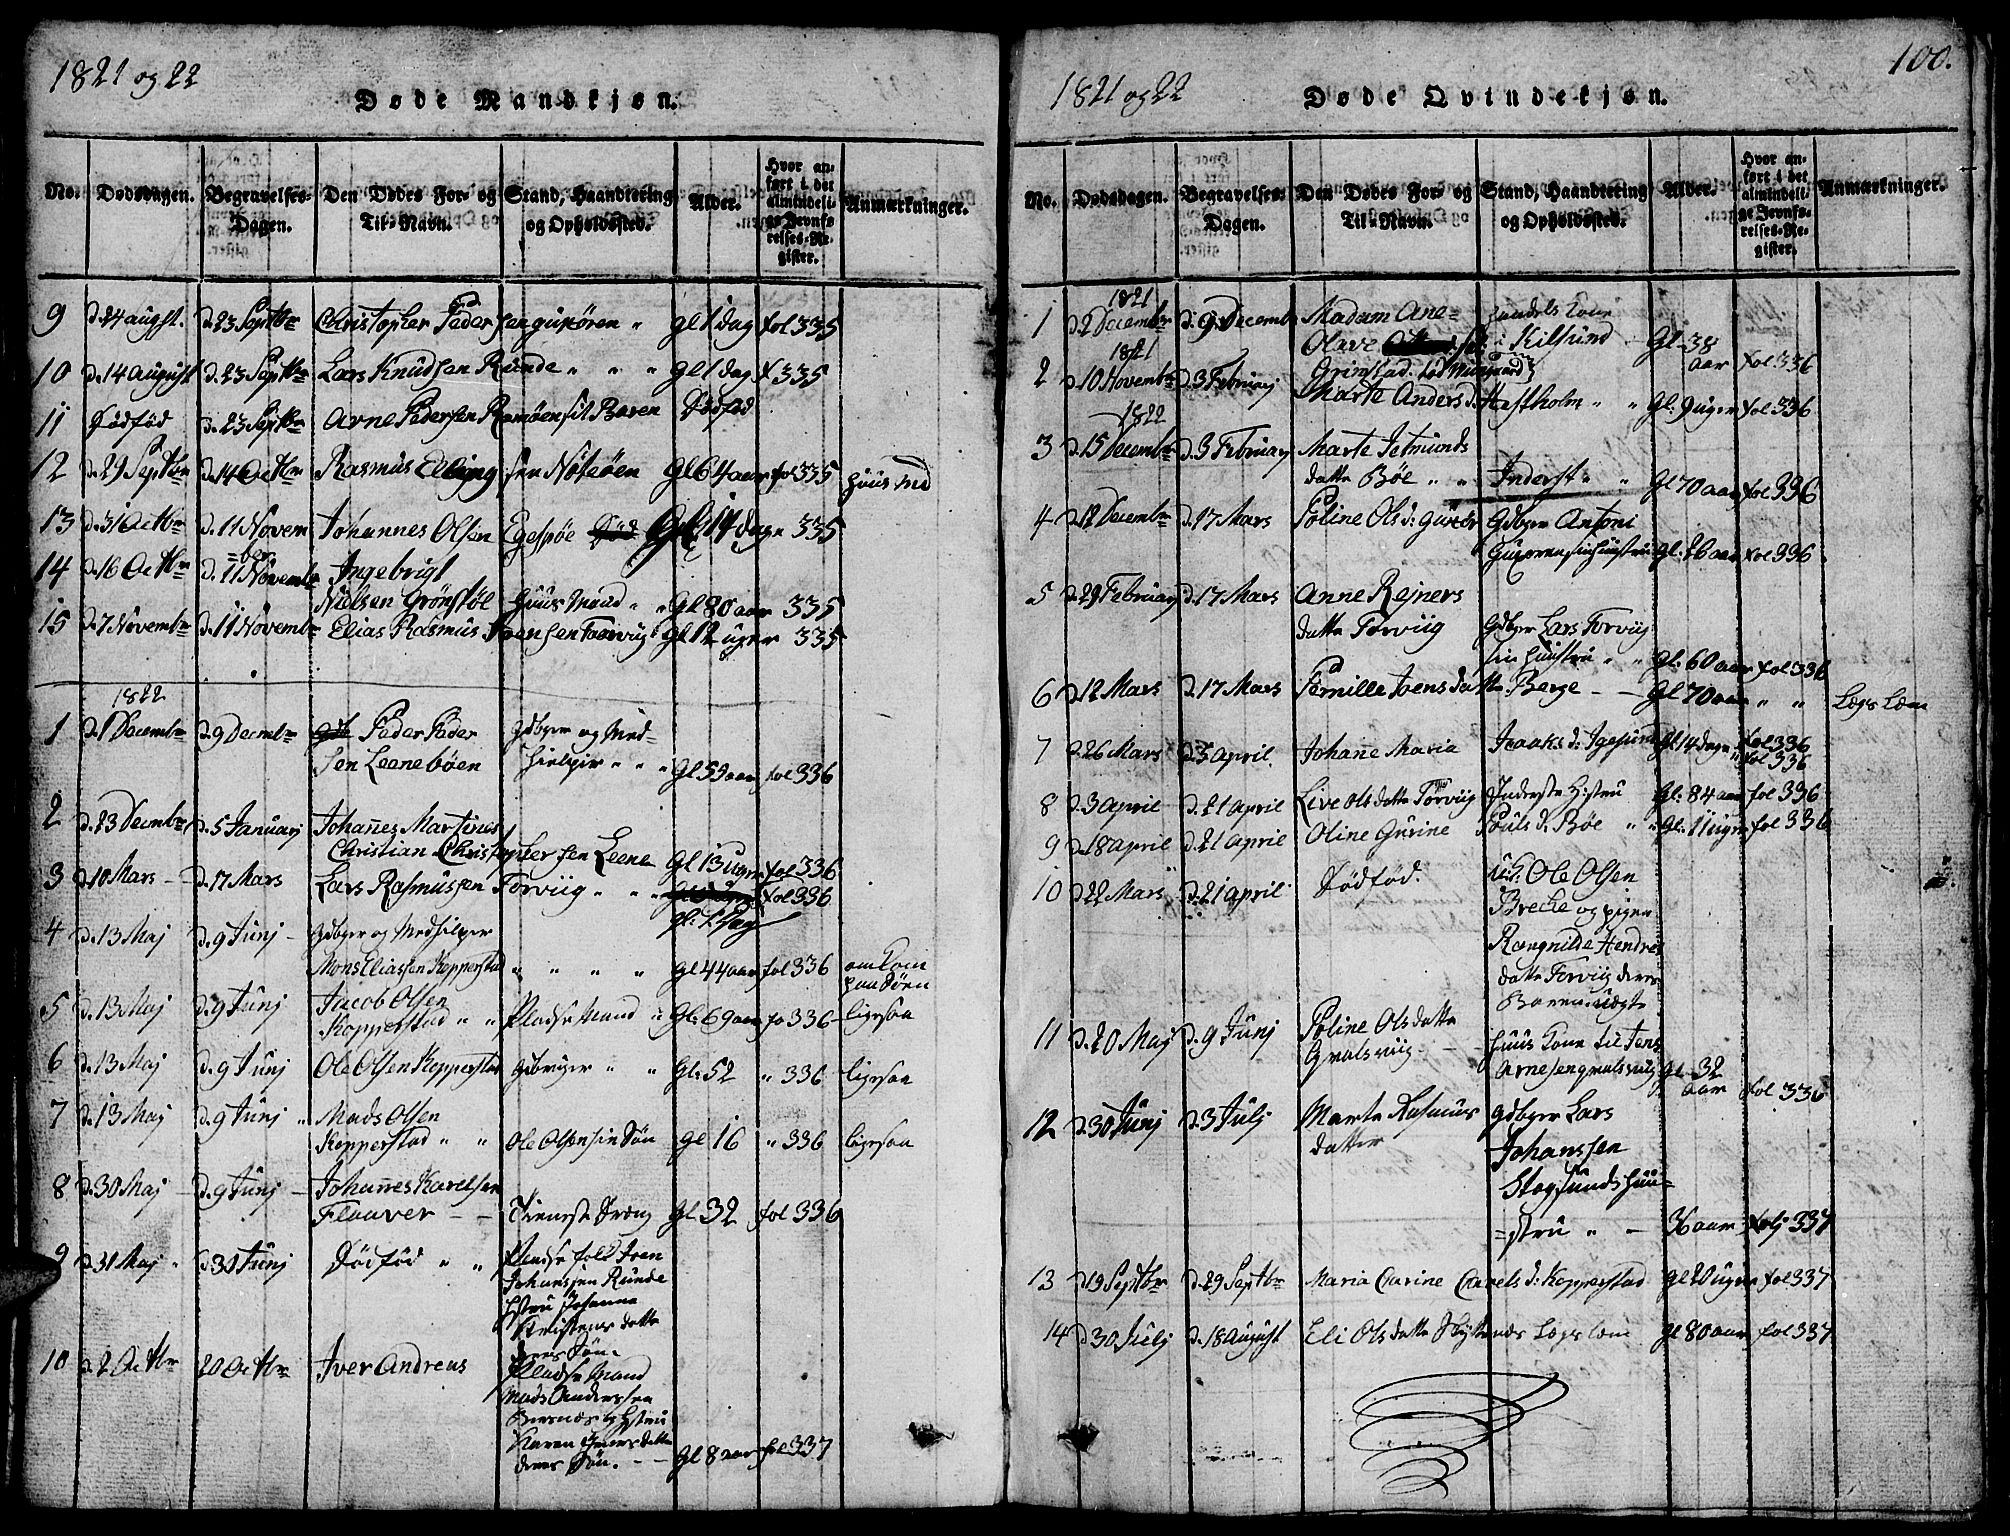 1821 og 22
Døde Mandkjøn.
No. Dødsdagen. Begravelses-Dagen. Den Dødes For- og Til-Navn. Stand, Haandtering og Opholdssted. Alder. Hvor anført i det almindelige Jevnførelses-Register. Anmærkninger.
9 d. 24 augst. d. 23 Septbr Christopher Peder sen gursøren " gl 1 dag fol 335
10 d. 14 august d. 23 Septbr Lars Knudsen Runde " " " gl 1 dag f 335
11 Dødfød d. 23 Septbr Arne Pedersen Remøens it Baren Dødfød
12 d. 29 Septbr d. 14 Octbr Rasmus Elling sen Nøtsøen Gl 64 aar fol 335 huus Md
13 d. 31 Octbr d. 11 Novem Johannes Olsen Egespøe Død Gl 14 dage 335
=ber
14 d. 16 Octbr d. 11 Novembr Ingebrigt
Nielsen Grønstøl huus Mand " " Gl 80 aar 335
15 d. 7 Novembr d. 11 Novembr Elias Rasmus Ivensen Torviig Gl 12 uger 335
1822
1 d. 1 Decembr d. 9 Decmbr Peder Peder gdbger og Med-
sen Leenebøen hielper " " " Gl 59 aar fol 336
2 d. 23 Decmbr d. 5 Januarj Johañes Martines
Christian Christopher sen Leene Gl 13 uger fol 336
3 d. 10 Mars - d. 17 Mars Lars Rasmussen Torviig " " fol 336
gl. 1 Dag
4 d. 13 Maj d. 9 Junj - Gdbger og Medhilper
Mons Eliassen Kopperstad " " " " gl 44 aar fol 336 omkom
paa Søen
5 d. 13 Maj d. 9 Junj Jacob Olsen
Kopperstad " " Pladse Mand " Gl. 69 aar fo 336 - ligesaa
6 d. 13 Maj d. 9 Junj Ole Olsen Kopperstad gdbruger " " Gl. 52 " 336 ligesaa
7 d. 13 Maj d. 9 Junj " Mads Olsen
Kopperstad " " Ole Olsen sin Søn gl 16 " 336 ligesaa
8 d. 30 Maj d. 9 Junj - Johañes Karelsen
Flaaver - - Tieneste Dreng Gl 32 fol 336
9 d. 31 Maj " d. 30 Junj Dødfød " " Pladse folk Iven
Johanssen Runde
Hstru Johanna
Kristens datte
deres Søn -
10 d. 2 Octbr 20 Octbr Iver Andreas Pladse Mand
Mads Anderssen
og Hstru
Karen datte
deres Søn. - - Gl 8 aar fol 337
100.
1821 og 22
Døde Qvindekjøn.
No. Dødsdagen. Begravelses-Dagen. Den Dødes For- og Til-Navn. Stand, Haandtering og Opholdssted. Alder. Hvor anført i det almindelige Jevnførelses-Register. Anmærkninger.
1821
1 d. 2 Decembr d. 9 Decembr Madam Ane- handels Kone
Olave i Kilsund Gl. 38
Grimstad aar fol 336
1821
2 d. 10 Novembr d. 3 Februarj Marte Anders d. Hestholm " " Gl. 9 uger fol 336
1822
3 d. 15 Decembr d. 3 Februarj Marte Jetmunds
datte Bøe " " Inderst " " Gl 70 aar fol 336
4 d. 12 Decembr d. 17 Mars Poline Ols d. Gursør Gdbger Antoni
Gursøren sin huustru gl. 26 aar fol 336
5 d. 29 Februarj d. 17 Mars Anne Rejners
datte Torviig Gdbger Lars Torviig
sin huustru " " Gl. 60 aar fol 336
6 d. 12 Mars d. 17 Mars Pernille Joens datte Berge - - Gl 70 aar " " Legs Lem
7 d. 26 Mars d. 5 april Johañe Maria Isaaks d. Igesund Gl 14 dage fol 336
fol 336
8 d. 3 april - d. 21 april Live Ols datte Torviig Inderste Hstru Gl. 84 aar fol 336
9 d. 18 april d. 21 april Oline Gurine Pouls d. Bøe " " Gl. 11 uger fol 336
10 d. 22 Mars d. 21 april Dødfød. U.G. Ole Olsen
Brecke og pigen
Rangnilde Hendres
datte Torviig deres
Baren uægte
11 d. 20 Maj d. 9 Junj Poline Ols datte
Gvalsviig - - huus Kone til Jens
Arnesen gvalsviig gl. 32
aar fol 336
12 d. 30 Junj d. 3 Julj Marte Rasmus gdbger Lars
datter Johanssen
Stogsunds huu=
=stru " - 36 aar folj 337
13 d. 19 Septbr d. 29 Septbr Maria Carine Carels d. Kopperstad gl 20 uger fol 337
14 d. 30 Julj d. 18 August Eli Ols datte Skytenes Legs lem gl 80 aar fol 337